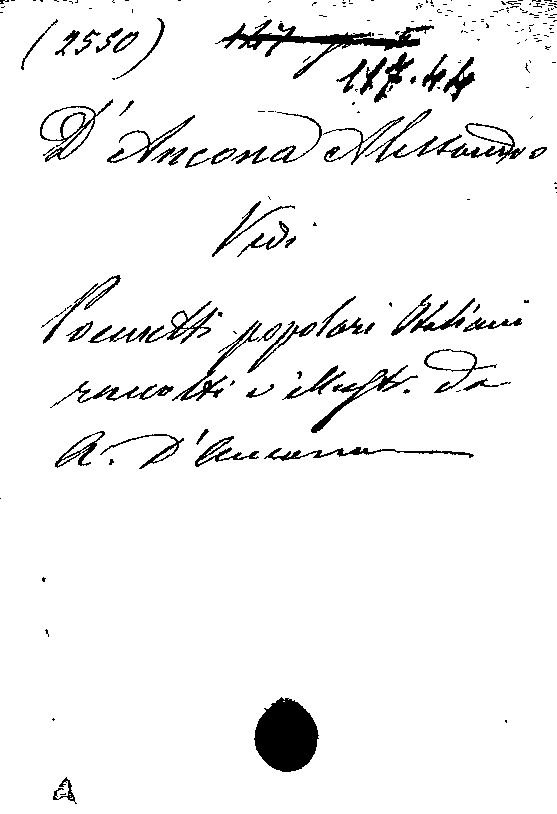 (2550)
117.44
D'Ancona Alessandro
Vedi
Poemetti popolari Italiani
raccolti e illustr. da
A. D'Ancona
A